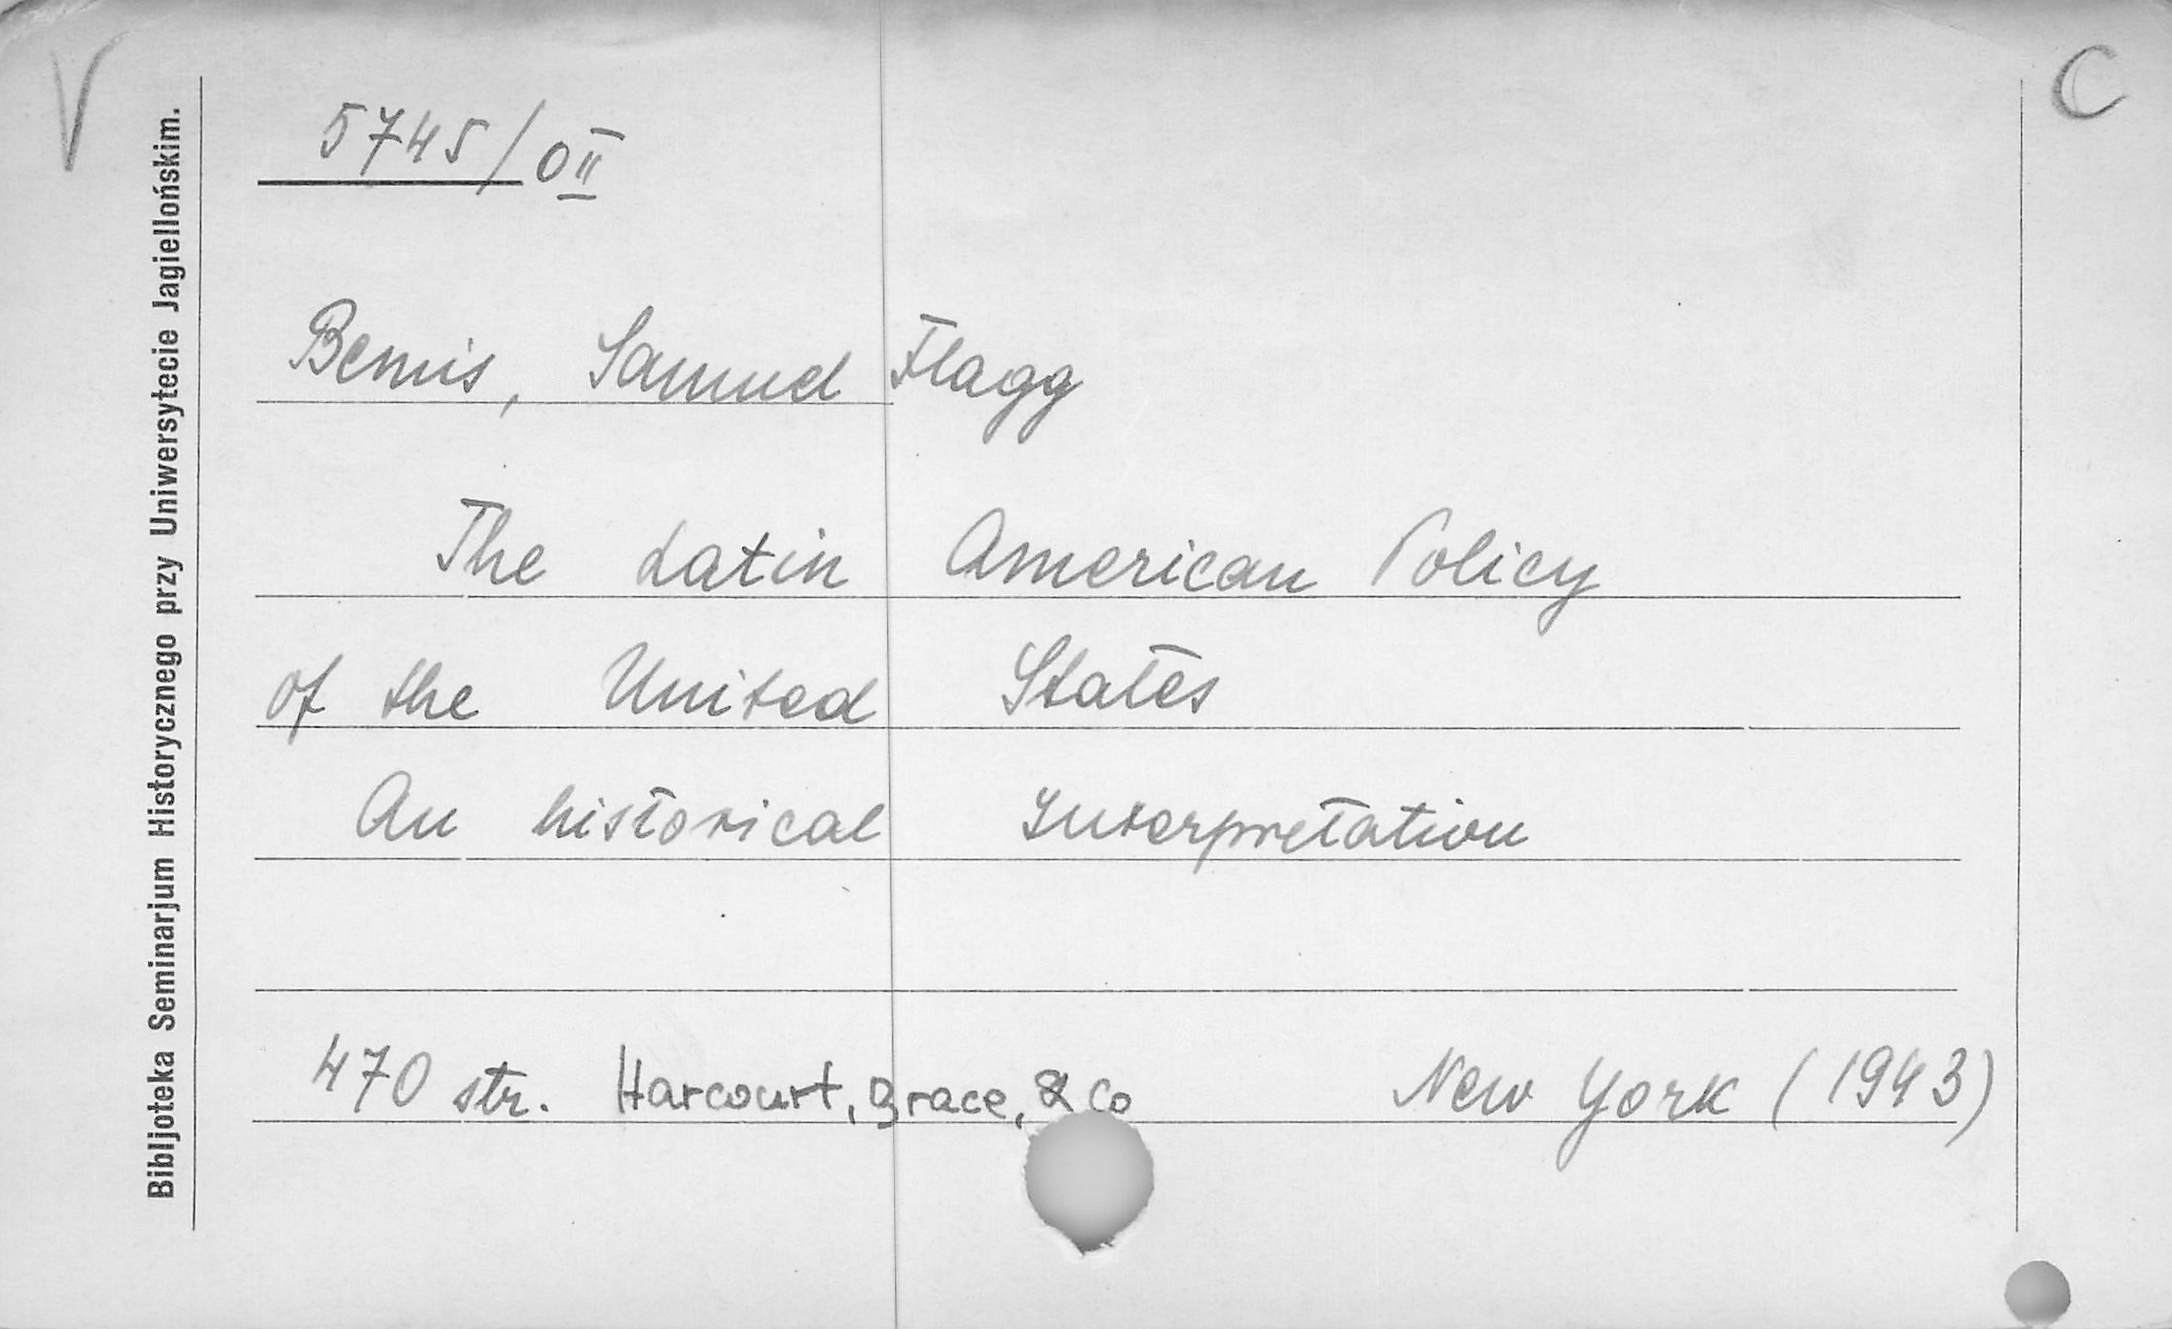 V
C
5745/0II
Bemis, Samuel Flagg
The Latin American Policy
of the United States
An historical Interpretation
470 str. Harcourt, Brace, & Co New York (1943)
Bibljoteka Seminarjum Historycznego przy Uniwersytecie Jagiellońskim.